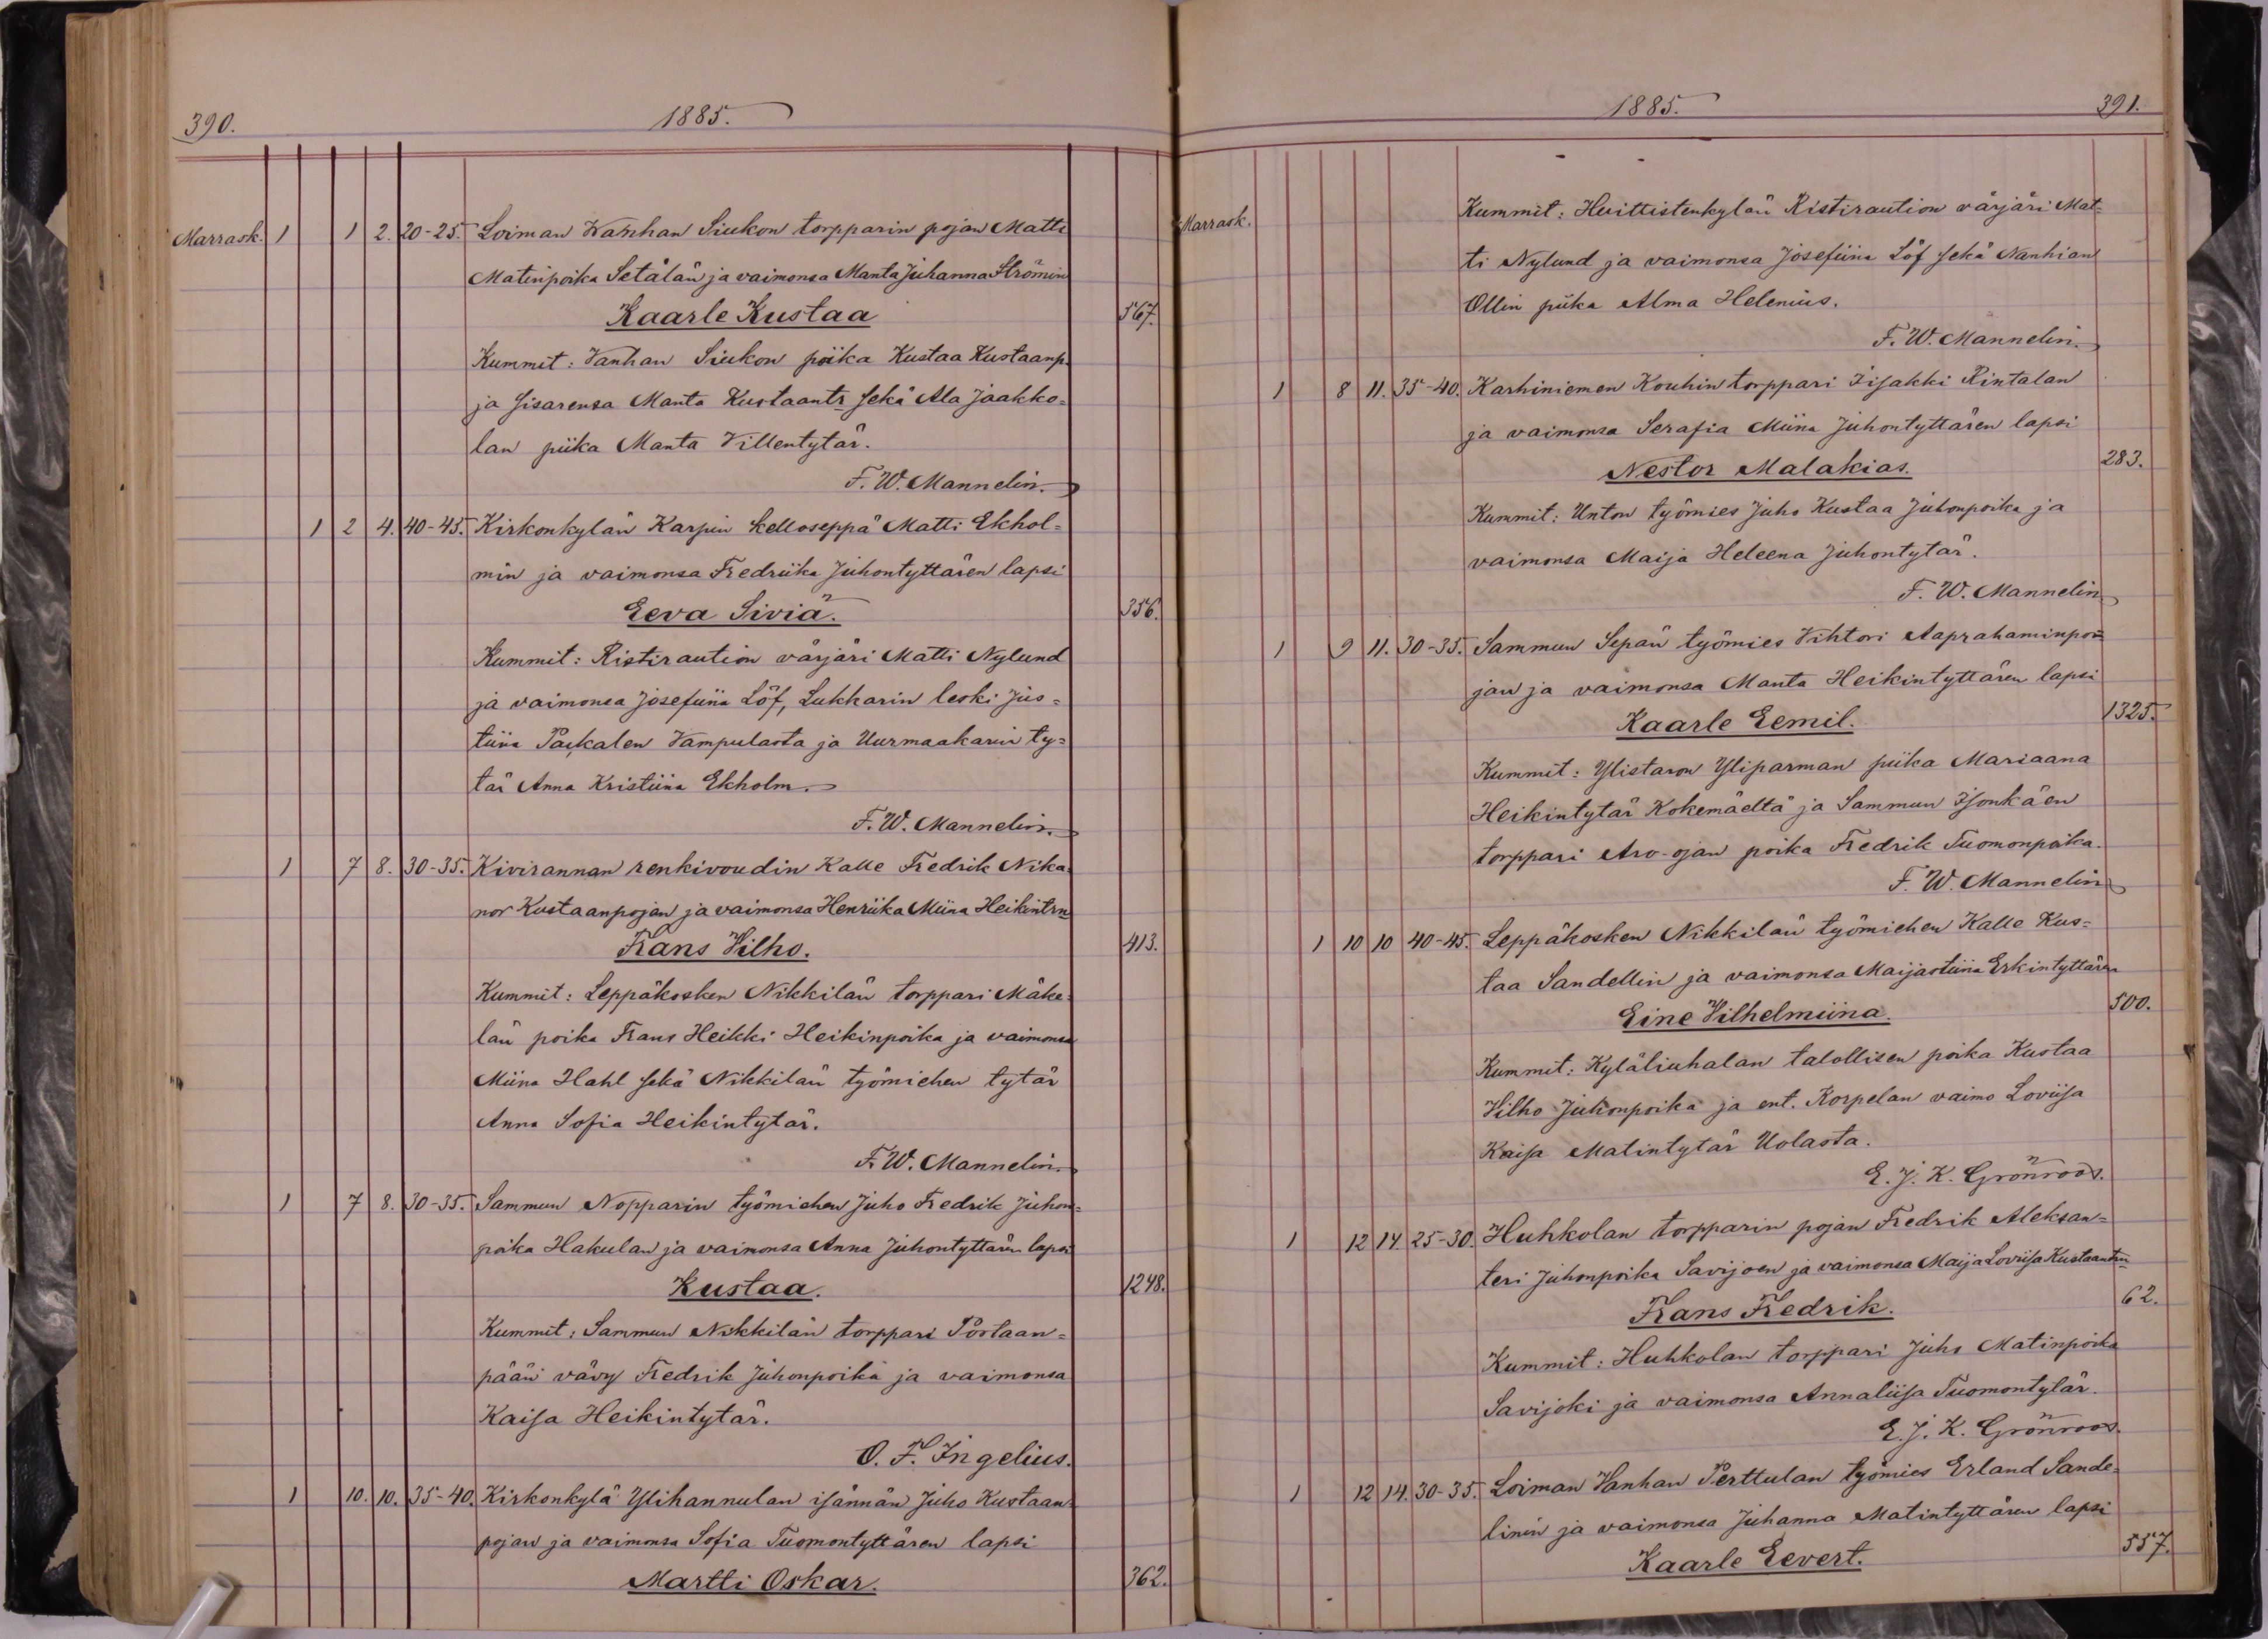 390.
1885.
Marrask. 1 1 2. 20-25. Loiman Wanhan Siukon torpparin pojan Matti
Matinpoika Setälän ja vaimonsa Manta Juhanna Strömin
Kaarle Kustaa 567.
Kummit: Vanhan Siukon poika Kustaa Kustaanp.
ja sisarensa Manta Kustaantr sekä Ala Jaakko=
lan piika Manta Villentytär.
F. W. Mannelin.
1 2 4. 40-45. Kirkonkylän Karpin kelloseppä Matti Ekhol=
min ja vaimonsa Fredriika Juhontyttären lapsi
Eeva Siviä. 356.
Kummit: Ristiraution värjäri Matti Nylund
ja vaimonsa Josefiina Löf, Lukkarin leski Jus=
tiina Packalen Vampulasta ja Uurmaakarin ty=
tär Anna Kristiina Ekholm.
F. W. Mannelin.
1 7 8. 30-35. Kivirannan renkivoudin Kalle Fredrik Nika=
nor Kustaanpojan ja vaimonsa Henriika Miina Heikintrn
Frans Vilho. 413.
Kummit: Leppäkosken Nikkilän torppari Mäke=
län poika Frans Heikki Heikinpoika ja vaimonsa
Miina Hahl sekä Nikkilän työmiehen tytär
Anna Sofia Heikintytär.
F. W. Mannelin.
1 7 8. 30-35. Sammun Nopparin työmiehen Juho Fredrik Juhon=
poika Hakulan ja vaimonsa Anna Juhontyttären lapsi
Kustaa. 1248.
Kummit: Sammun Nikkilän torppari Portaan=
pään vävy Fredrik Juhonpoika ja vaimonsa
Kaisa Heikintytär.
O. F. Ingelius.
1 10. 10. 35-40. Kirkonkylä Ylihannulan isännän Juho Kustaan=
pojan ja vaimonsa Sofia Tuomontyttären lapsi
Martti Oskar. 362.
1885.
391.
Marrask. Kummit: Huittistenkylän Ristiraution värjäri Mat=
ti Nylund ja vaimonsa Josefiina Löf sekä Nanhian
Ollin piika Alma Helenius.
F. W. Mannelin.
1 8 11. 35-40. Karhiniemen Kouhin torppari Iisakki Rintalan
ja vaimonsa Serafia Miina Juhontyttären lapsi
Nestor Malakias. 283.
Kummit: Unton työmies Juho Kustaa Juhonpoika ja
vaimonsa Maija Heleena Juhontytär.
F. W. Mannelin
1 9 11. 30-35. Sammun Sepän työmies Vihtori Aaprahaminpoi=
jan ja vaimonsa Manta Heikintyttären lapsi
Kaarle Eemil. 1325.
Kummit: Ylistaron Yliparman piika Mariaana
Heikintytär Kokemäeltä ja Sammun Isonkäen
torppari Aro-ojan poika Fredrik Tuomonpoika.
F. W. Mannelin
1 10 10 40-45. Leppäkosken Nikkilän työmiehen Kalle Kus=
taa Sandellin ja vaimonsa Maijastiina Erkintyttären
Eine Vilhelmiina. 500.
Kummit: Kyläliuhalan talollisen poika Kustaa
Vilho Juhonpoika ja ent. Korpelan vaimo Loviisa
Kaisa Matintytär Uolasta.
E. J. K. Grönroos.
1 12 14. 25-30. Huhkolan torpparin pojan Fredrik Aleksan=
teri Juhonpoika Savijoen ja vaimonsa Maija Loviisa Kustaantrn
Frans Fredrik. 62.
Kummit: Huhkolan torppari Juho Matinpoika
Savijoki ja vaimonsa Annaliisa Tuomontytär.
E. J. K. Grönroos.
1 12 14. 30-35. Loiman Vanhan Perttulan työmies Erland Sande=
linin ja vaimonsa Juhanna Matintyttären lapsi
Kaarle Eevert. 557.